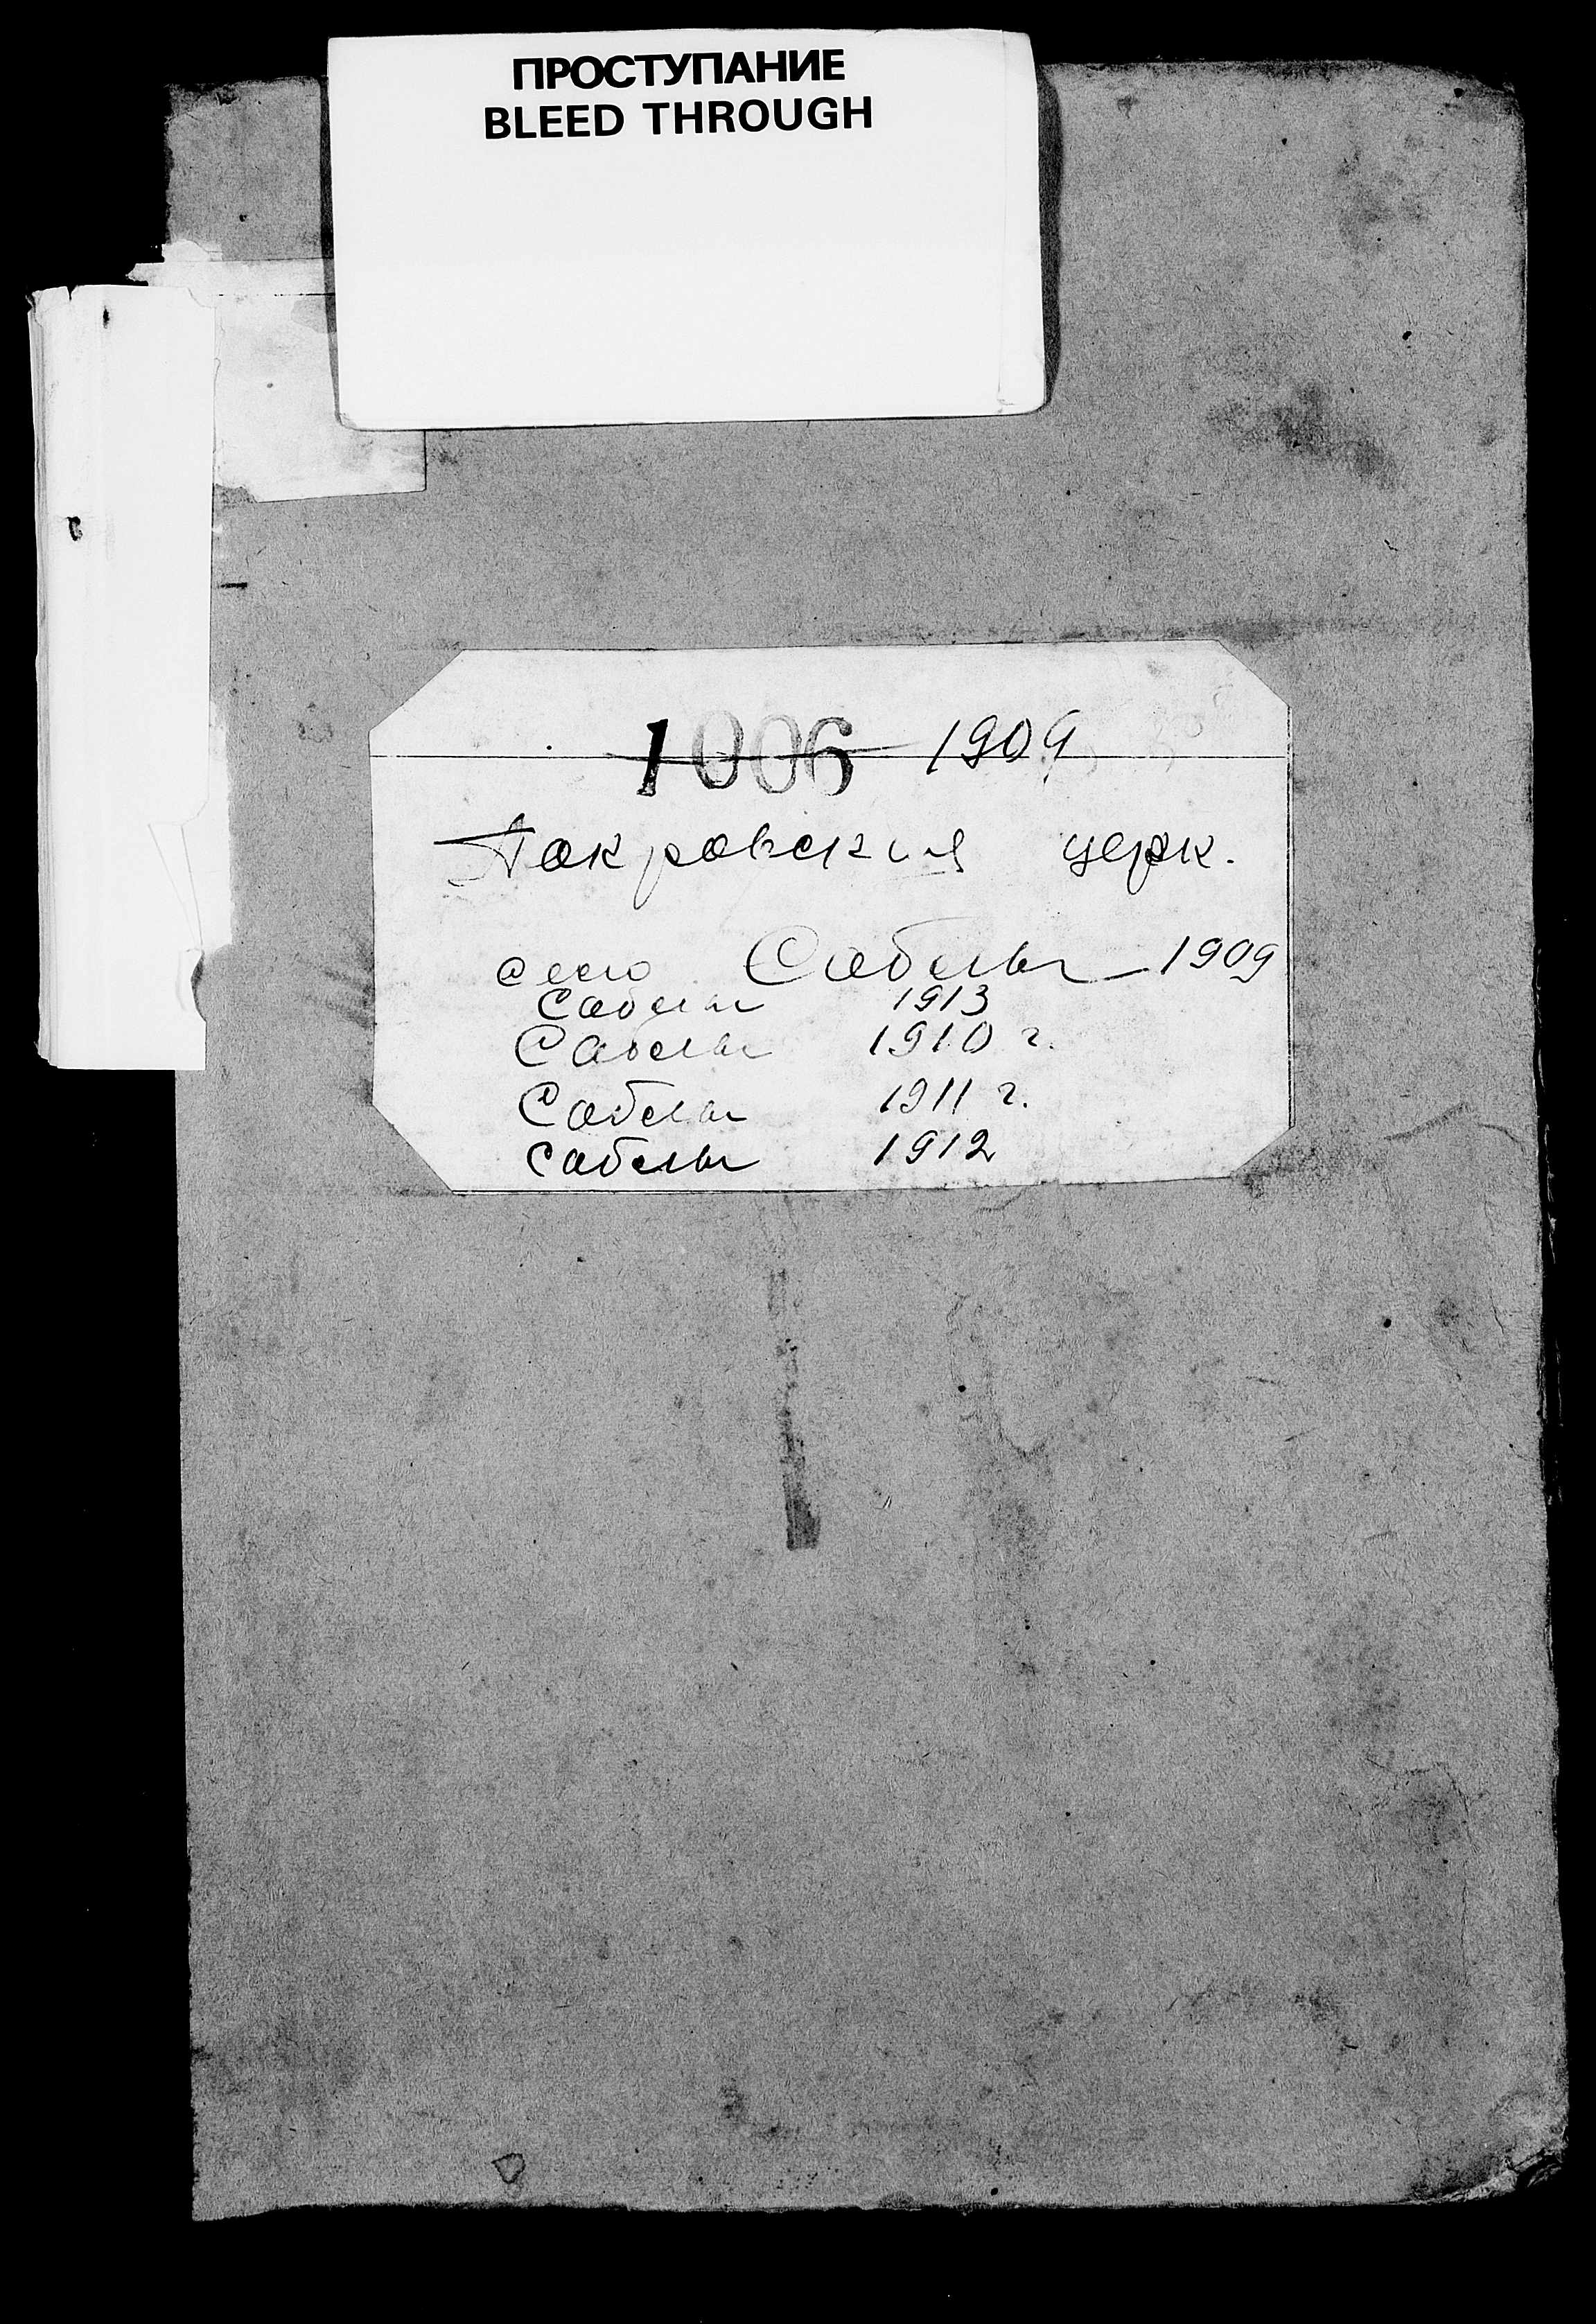 ПРОСТУПАНИЕ
BLEED THROUGH
1906 1909
Покровская церк.
село Сабелы - 1909
Сабелы 1913
Сабелы 1910 г.
Сабелы 1911 г.
Сабелы 1912